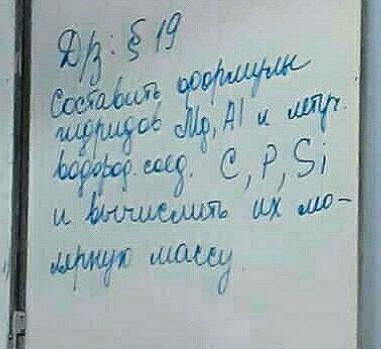 Д/з: § 19
Составить формулы
гидридов Mg, Al и летуч.
водород. соед. C, P, Si
и вычислить их мо-
лярную массу.